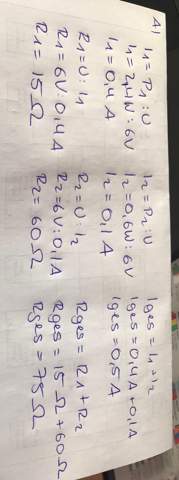 A1
I1 = P1 : U
I1 = 2,4W : 6V
I1 = 0,4 A
R1 = U : I1
R1 = 6V : 0,4A
R1 = 15 Ω
I2 = P2 : U
I2 = 0,6W : 6V
I2 = 0,1 A
R2 = U : I2
R2 = 6V : 0,1A
R2 = 60 Ω
Iges = I1 + I2
Iges = 0,4A + 0,1A
Iges = 0,5 A
Rges = R1 + R2
Rges = 15 Ω + 60 Ω
Rges = 75 Ω